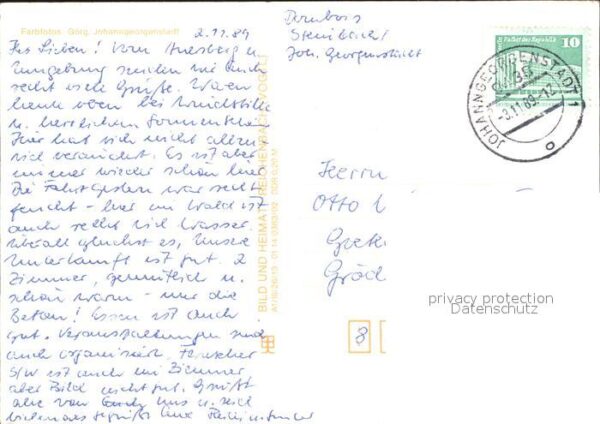 Farbfotos Görg, Johanngeorgenstadt
2.11.89
Ihr Lieben! Vom Auersberg u.
Umgebung senden wir euch
recht viele Grüße. Waren
heute oben bei Windstille
u. herrlichem Sonnenschein
Hier hat sich nicht allzu
viel verändert. Es ist aber
immer wieder schön hier
Die Fahrt gestern war recht
feucht - hier im Wald ist
auch recht viel Wasser.
überall es, Unsere
Unterkunft ist gut. 2
Zimmer, gemütlich u.
schön warm - nur die
Betten! Essen ist auch
gut. Veranstaltungen sind
auch organisiert, Fernseher
S/W ist auch im Zimmer
aber Bild nicht gut. Grüßt
alle von uns u. seid
gegrüßt
BILD UND HEIMAT REICHENBACH (VOGTL)
DDR 0,20 M
Steinbach
Joh. Georgenstadt
Palast der Republik
10
JOHANNGEORGENSTADT 1
-3.11.89-12
Herrn
Otto
8
privacy protection
Datenschutz